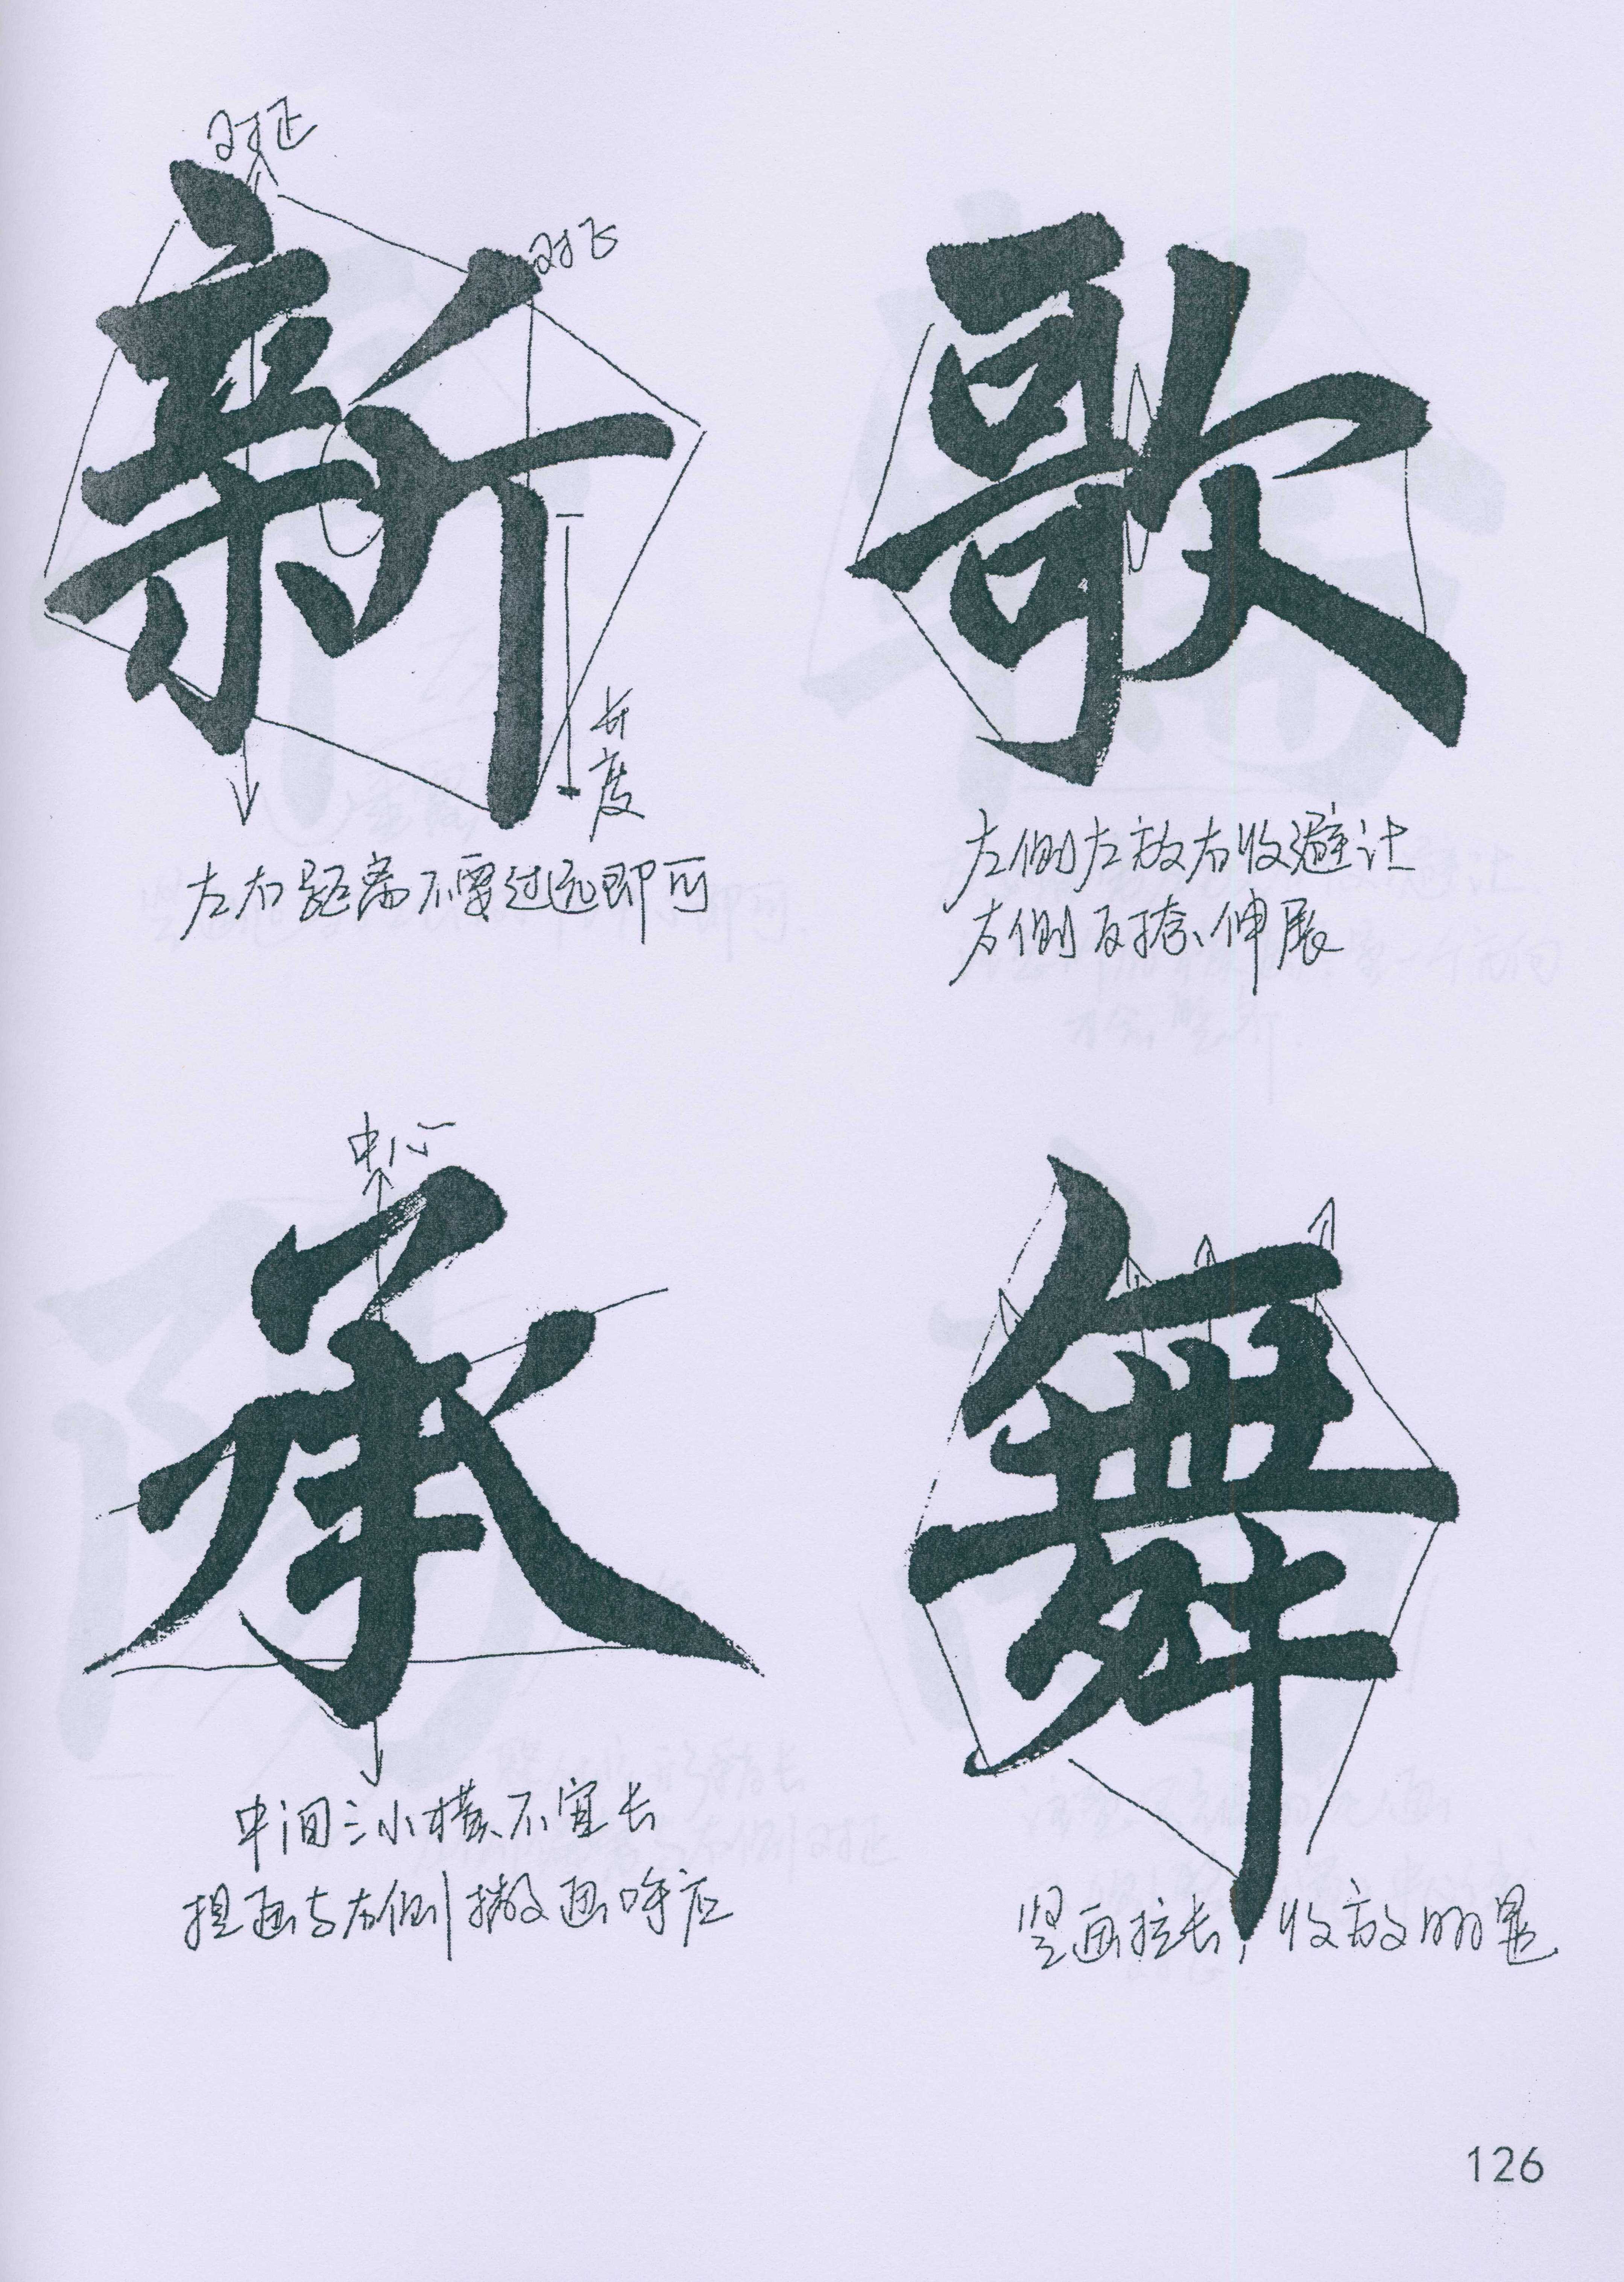 对正
对正
新
长度
左右距离不要过远即可
歌
左侧左放右收避让
右侧反捺伸展
中心
承
中间三小横不宜长
提画与右侧撇画呼应
舞
竖画拉长，收放明显
126